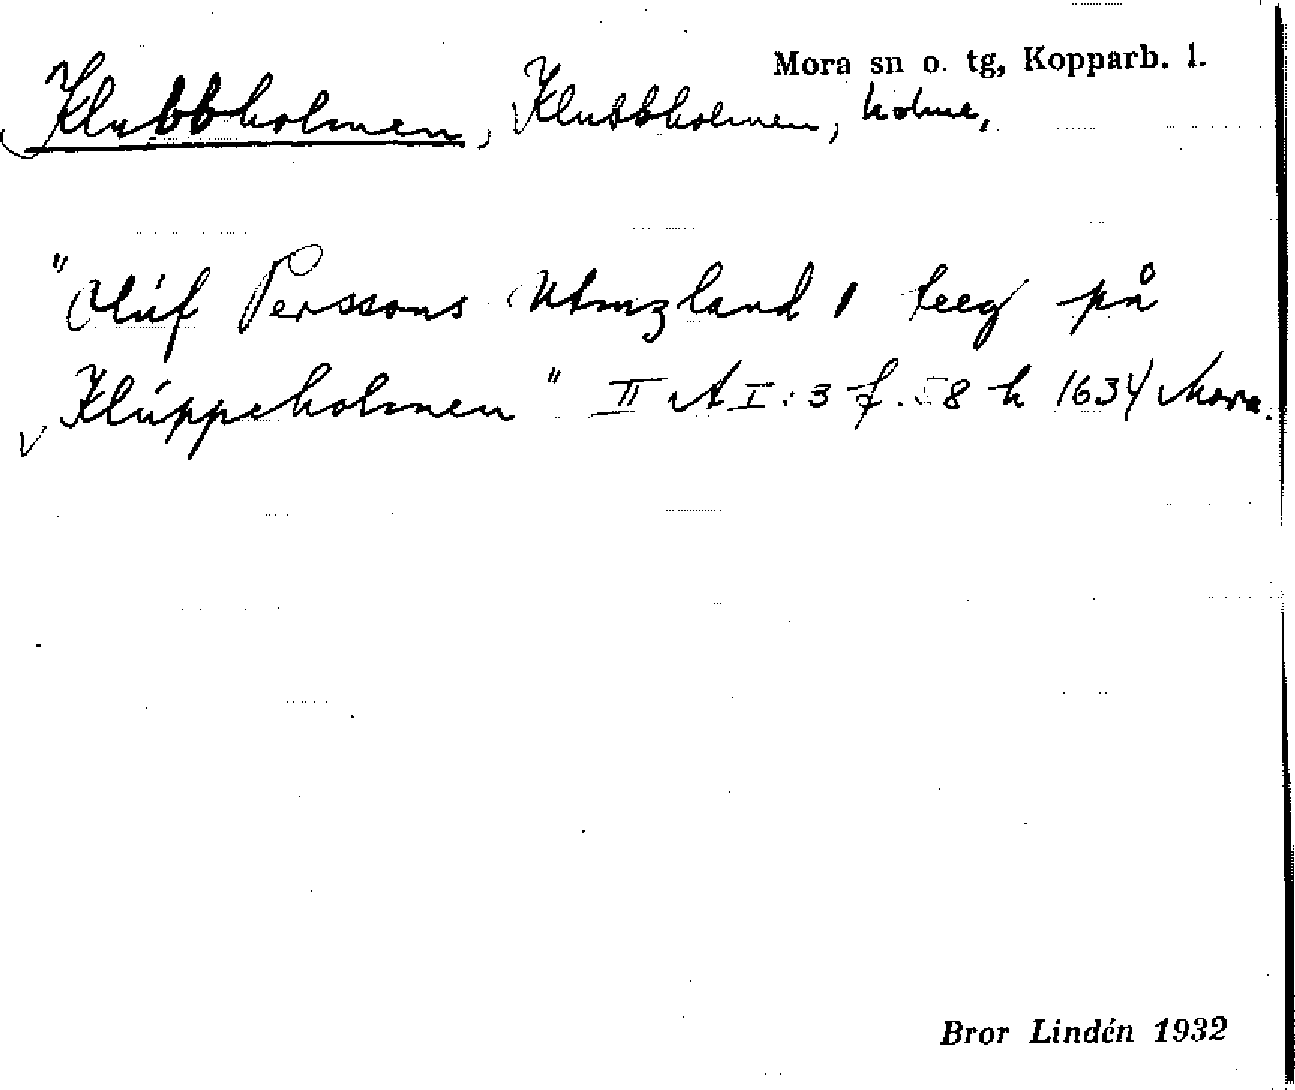 Mora sn o. tg, Kopparb. l.
Klubbholmen, Klubbholmen, holme,
"Olúf Perssons land 1 teeg på
Klúppeholmen" II A I:3 f. 58 h 1634 Mora.
Bror Lindén 1932